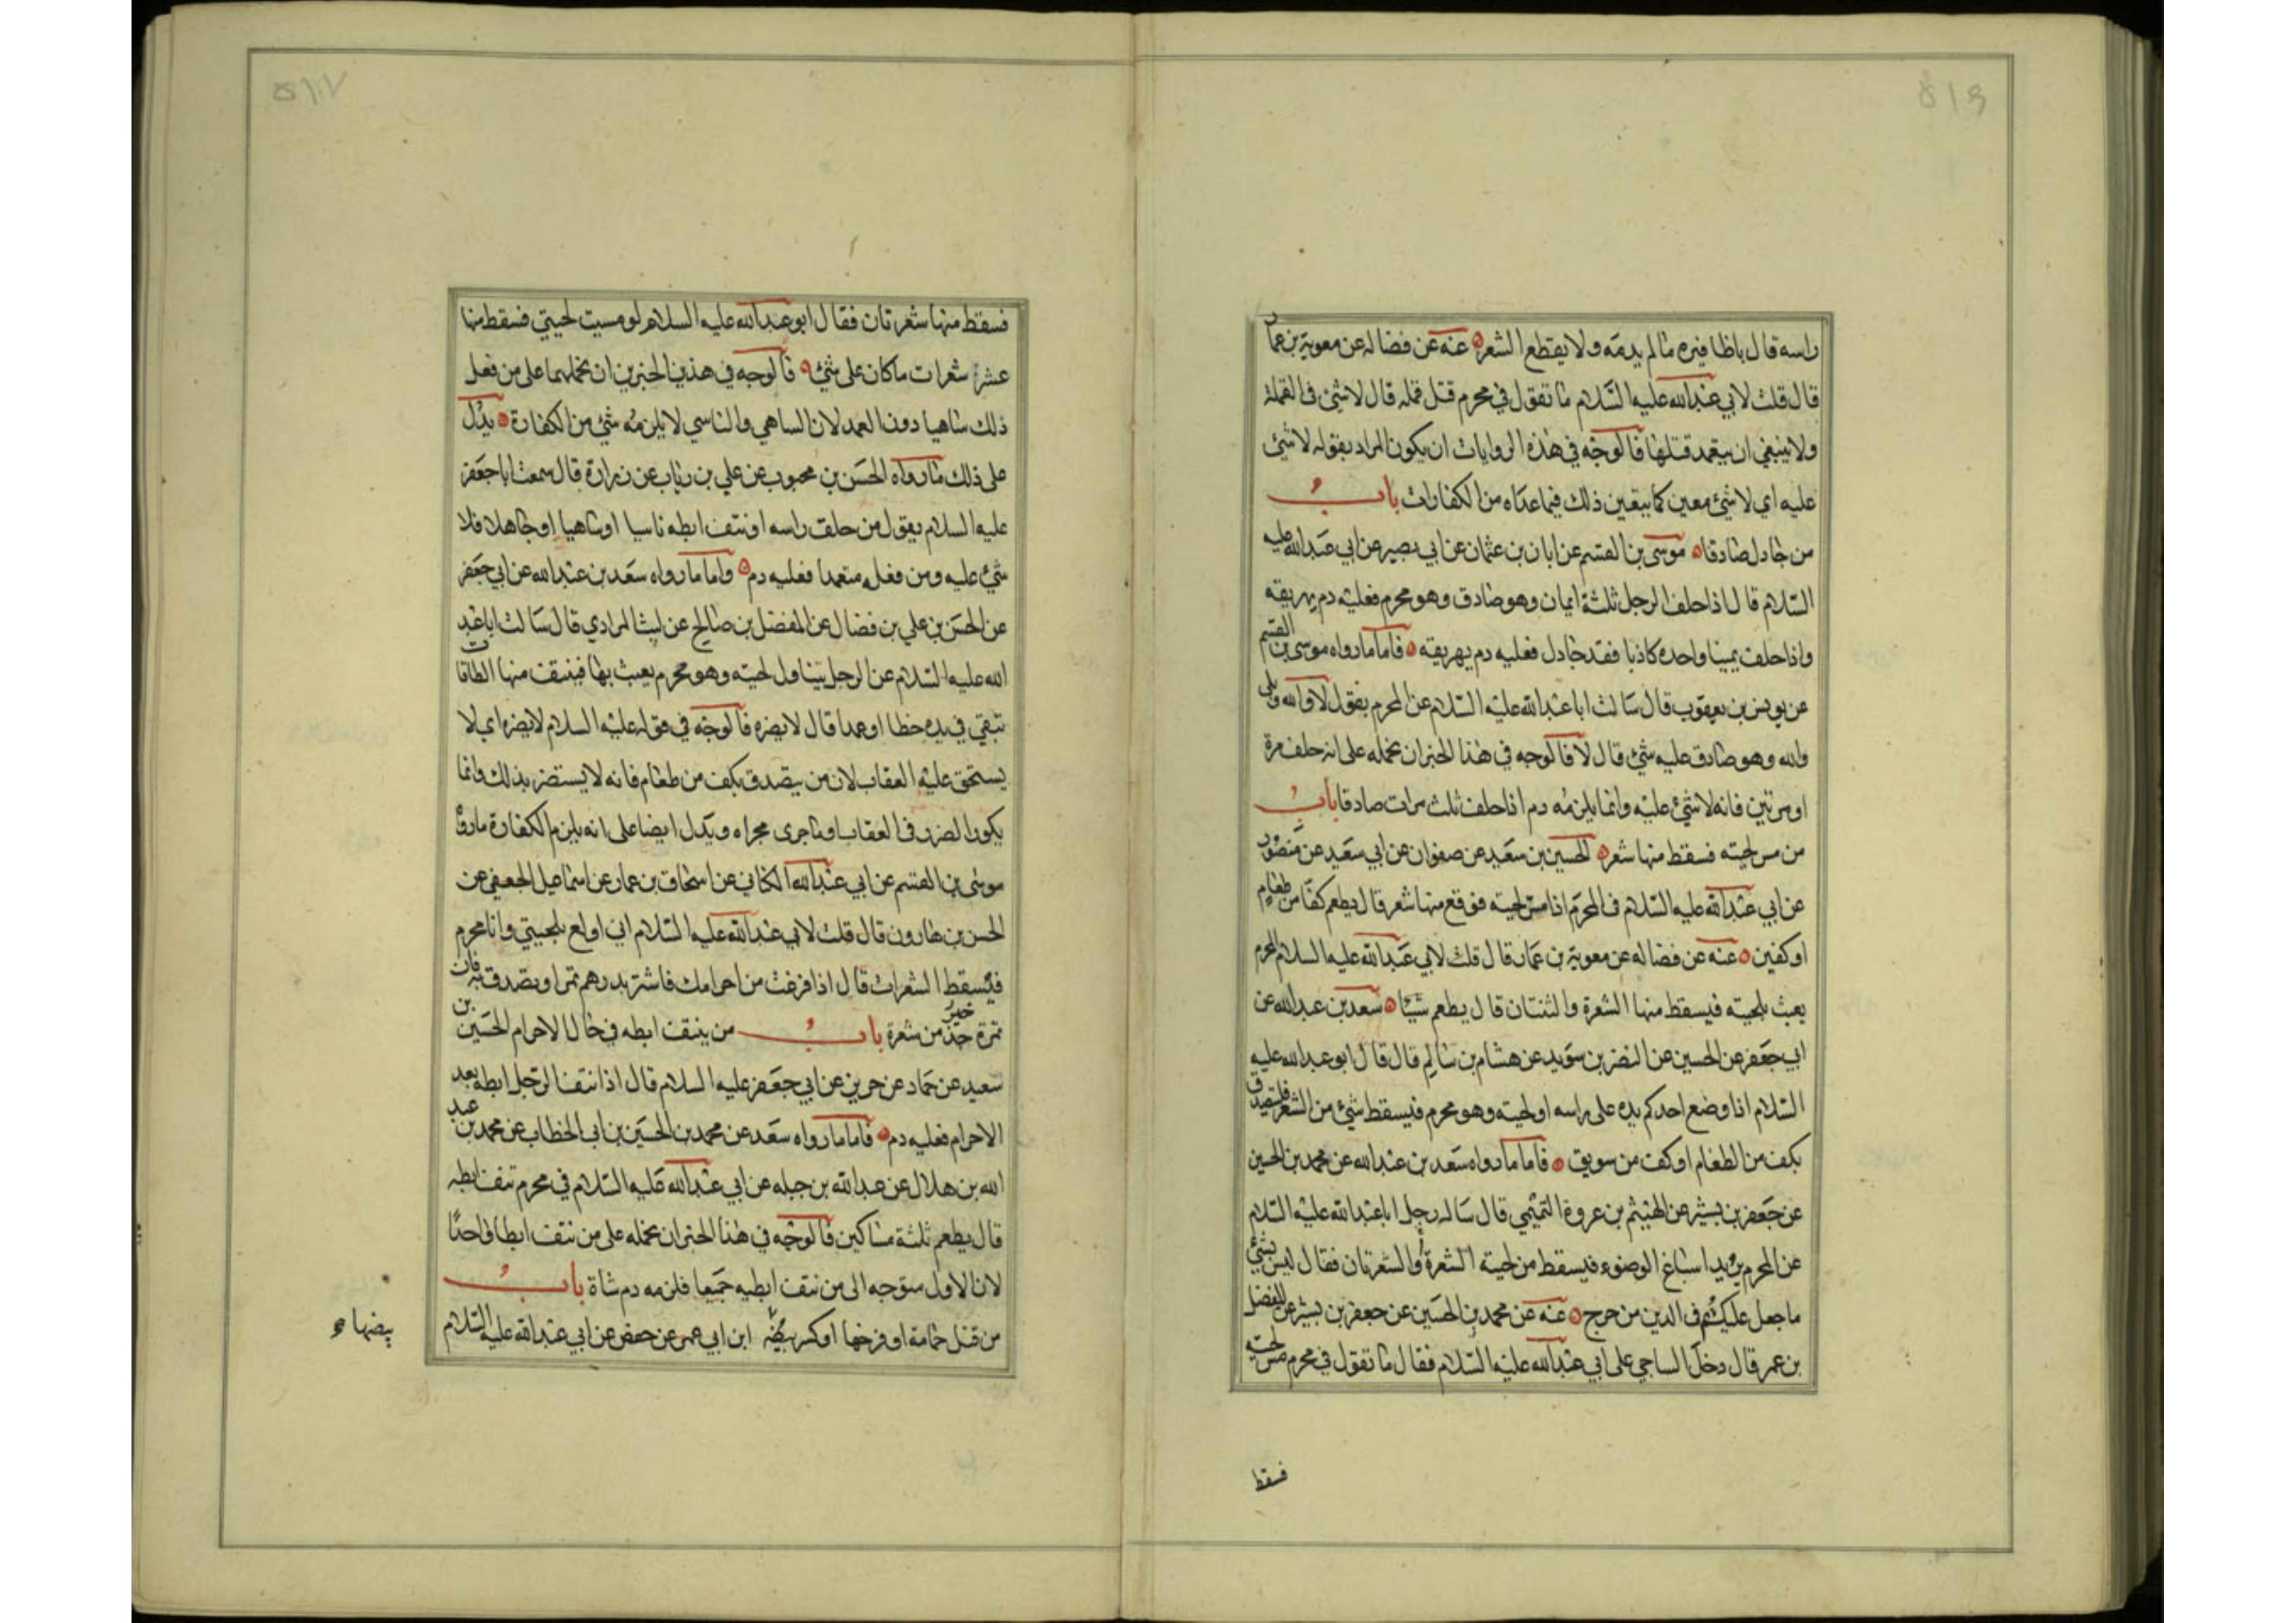 راسه قال باظافيره ما لم يدمه ولا يقطع الشعر عنه عن فضاله عن معوية بن عمار
قال قلت لابي عبدالله عليه السلام ما تقول في محرم قتل قمله قال لا شئ في القملة
ولا ينبغي ان يتعمد قتلها فالوجه في هذه الروايات ان يكون المراد بقوله لا شئ
عليه اي لا شئ معين كما يتعين ذلك فيما عداه من الكفارات باب
من جادل صادقا موسى بن القسم عن ابان بن عثمان عن ابي بصير عن ابي عبدالله عليه
السلام قال اذا حلف الرجل ثلثة ايمان وهو صادق وهو محرم فعليه دم يهريقه
واذا حلف يمينا واحده كاذبا فقد جادل فعليه دم يهريقه فاما ما رواه موسى بن القسم
عن يونس بن يعقوب قال سالت ابا عبدالله عليه السلام عن المحرم يقول لا والله وبلى
والله وهو صادق عليه شئ قال لا فالوجه في هذا الخبر ان نحمله على انه حلف مرة
او مرتين فانه لا شئ عليه وانما يلزمه دم اذا حلف ثلث مرات صادقا باب
من مس لحيته فسقط منها شعر الحسين بن سعيد عن صفوان عن ابي سعيد عن منصور
عن ابي عبدالله عليه السلام في المحرم اذا مس لحيته فوقع منها شعر قال يطعم كفا من طعام
او كفين عنه عن فضاله عن معوية بن عمار قال قلت لابي عبدالله عليه السلام المحرم
يعبث بلحيته فيسقط منها الشعرة والثنتان قال يطعم شيئا سعد بن عبدالله عن
ابي جعفر عن الحسين عن النضر بن سويد عن هشام بن سالم قال قال ابو عبدالله عليه
السلام اذا وضع احدكم يده على راسه او لحيته وهو محرم فيسقط شئ من الشعر فليتصدق
بكف من الطعام او كف من سويق فاما ما رواه سعد بن عبدالله عن محمد بن الحسين
عن جعفر بن بشير عن الهيثم بن عروة التميمي قال ساله رجل ابا عبدالله عليه السلام
عن المحرم يريد اسباغ الوضوء فيسقط من لحيته الشعرة والشعرتان فقال ليس بشئ
ما جعل عليكم في الدين من حرج عنه عن محمد بن الحسين عن جعفر بن بشير عن المفضل
بن عمر قال دخل الساجي على ابي عبدالله عليه السلام فقال ما تقول في محرم مس لحيته
فسقط
فسقط منها شعرتان فقال ابو عبدالله عليه السلام لو مسيت لحيتي فسقط منها
عشر شعرات ما كان على شئ فالوجه في هذين الخبرين ان نحملهما على من فعل
ذلك ساهيا دون العمد لان الساهي والناسي لا يلزمه شئ من الكفارة يدل
على ذلك ما رواه الحسن بن محبوب عن علي بن رئاب عن زرارة قال سمعت ابا جعفر
عليه السلام يقول من حلق راسه او نتف ابطه ناسيا او ساهيا او جاهلا فلا
شئ عليه ومن فعله متعمدا فعليه دم واما ما رواه سعد بن عبدالله عن ابي جعفر
عن الحسن بن علي بن فضال عن المفضل بن صالح عن ليث المرادي قال سالت ابا عبد
الله عليه السلام عن الرجل يتناول لحيته وهو محرم يعبث بها فينتف منها الطاقات
تبقي في يده خطا او عمدا قال لا يضره فالوجه في قوله عليه السلام لا يضره اي لا
يستحق عليه العقاب لان من يتصدق بكف من طعام فانه لا يستضر بذلك وانما
يكون الضرر في العقاب وما جرى مجراه ويدل ايضا على انه يلزم الكفارة ما رواه
موسى بن القسم عن ابي عبدالله الكناني عن اسحاق بن عمار عن اسماعيل الجعفي عن
الحسن بن هارون قال قلت لابي عبدالله عليه السلام اني اولع بلحيتي وانا محرم
فيسقط الشعرات قال اذا فرغت من احرامك فاشتر بدرهم تمرا وتصدق به فان
تمرة خير من شعرة باب من ينتف ابطه في حال الاحرام الحسين بن
سعيد عن حماد عن حريز عن ابي جعفر عليه السلام قال اذا نتف الرجل ابطه بعد
الاحرام فعليه دم فاما ما رواه سعد عن محمد بن الحسين بن ابي الخطاب عن محمد بن عبد
الله بن هلال عن عبدالله بن جبله عن ابي عبدالله عليه السلام في محرم نتف ابطه
قال يطعم ثلثة مساكين فالوجه في هذا الخبر ان نحمله على من نتف ابطا واحدا
لان الاول متوجه الى من نتف ابطيه جميعا فلزمه دم شاة باب
من قتل حمامة او فرخها او كسر بيضه ابن ابي عمير عن حفص عن ابي عبدالله عليه السلام
بيضها